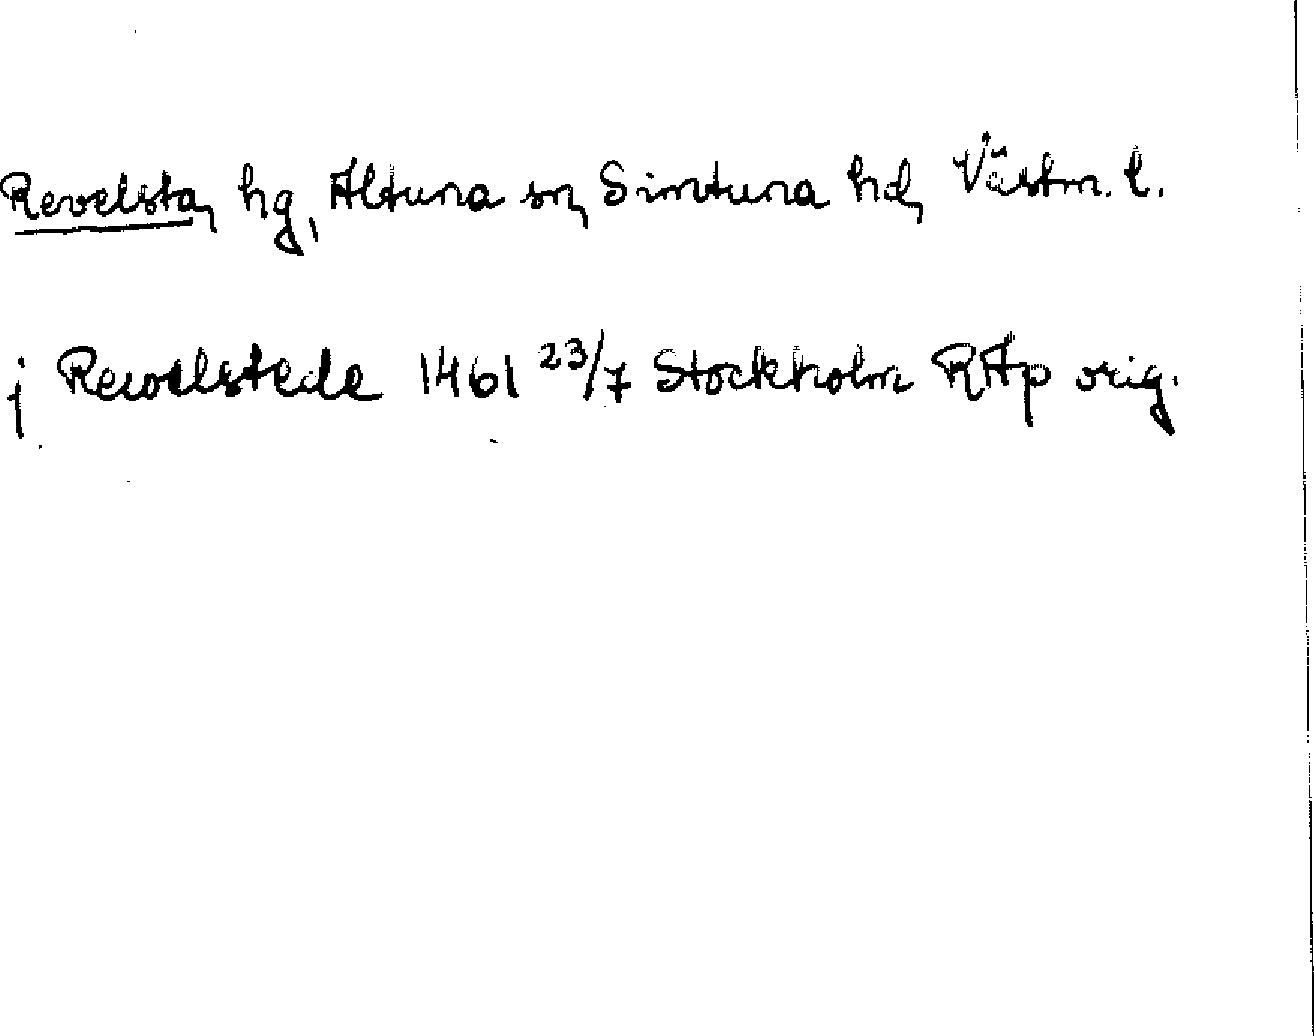 Revelsta, hg, Altuna sn, Simtuna hd, Västm. l.
j Rewelstede 1461 23/7 Stockholm RAp orig.